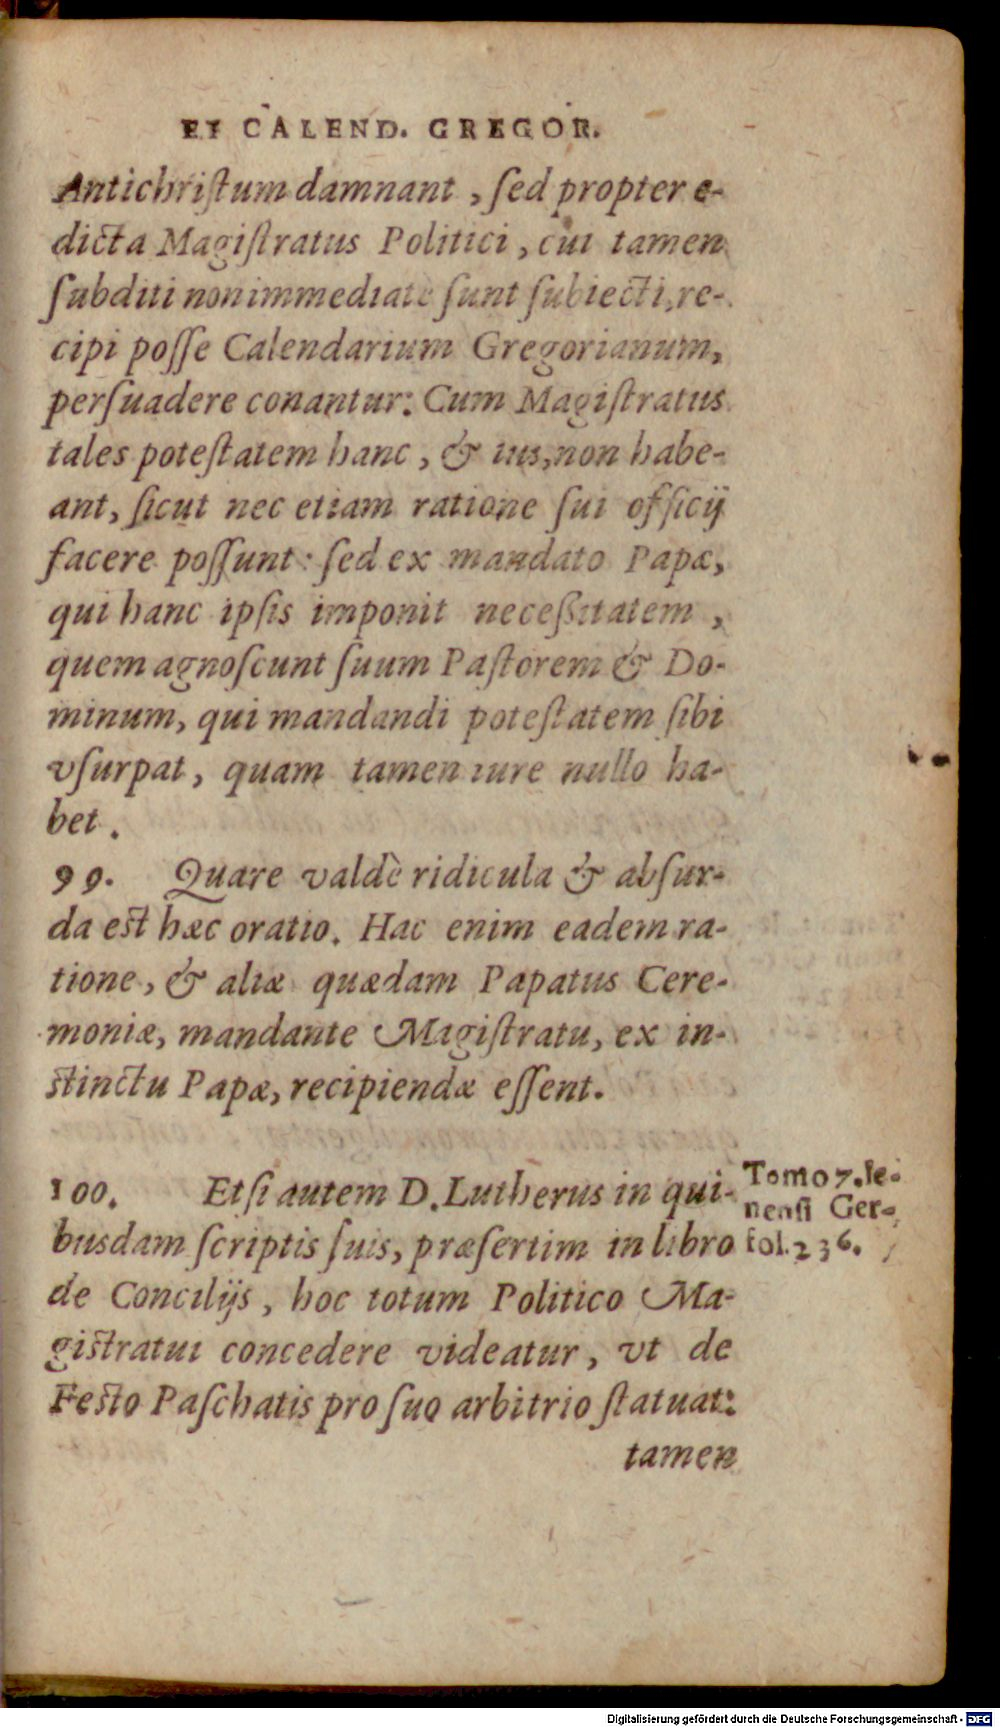 ET CALEND. GREGOR.
Antichriſtum damnant, ſed propter e-
dicta Magiſtratus Politici, cui tamen
ſubditi non immediatè ſunt ſubiecti, re-
cipi poſſe Calendarium Gregorianum,
perſuadere conantur: Cum Magiſtratus
tales poteſtatem hanc, & ius, non habe-
ant, ſicut nec etiam ratione ſui officij
facere poſſunt: ſed ex mandato Papæ,
qui hanc ipſis imponit neceßitatem,
quem agnoſcunt ſuum Paſtorem & Do-
minum, qui mandandi poteſtatem ſibi
vſurpat, quam tamen iure nullo ha-
bet.
99. Quare valdè ridicula & abſur-
da est hæc oratio. Hac enim eadem ra-
tione, & aliæ quædam Papatus Cere-
moniæ, mandante Magiſtratu, ex in-
stinctu Papæ, recipiendæ eſſent.
100. Etſi autem D. Lutherus in qui-
busdam ſcriptis ſuis, præſertim in libro
de Concilijs, hoc totum Politico Ma-
gistratui concedere videatur, vt de
Festo Paſchatis pro ſuo arbitrio ſtatuat:
tamen
Tomo 7. Ie-
nenſi Ger-
fol. 236.
Digitalisierung gefördert durch die Deutsche Forschungsgemeinschaft - DFG